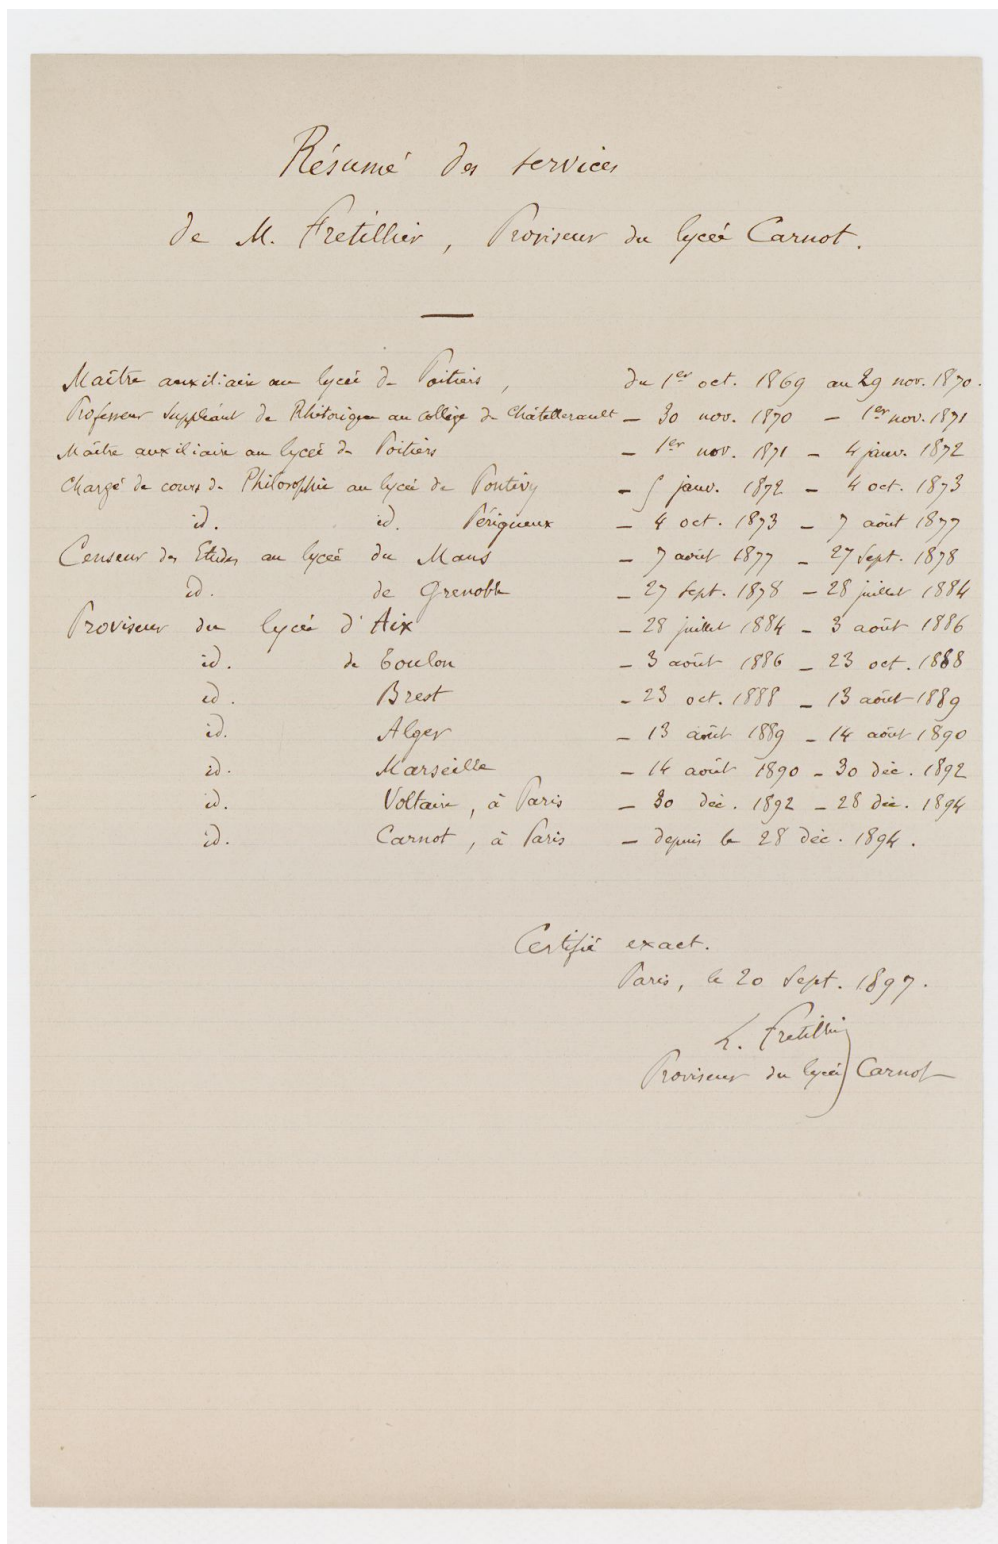 Résumé des services
de M. Fretillier, Proviseur du lycée Carnot.
Maître auxiliaire au lycée de Poitiers, du 1er oct. 1869 au 29 nov. 1870.
Professeur suppléant de Rhétorique au collège de Châtellerault – 30 nov. 1870 – 1er nov. 1871
Maître auxiliaire au lycée de Poitiers – 1er nov. 1871 – 4 janv. 1872
Chargé de cours de Philosophie au lycée de Pontivy – 5 janv. 1872 – 4 oct. 1873
id. id. Périgueux – 4 oct. 1873 – 7 août 1877
Censeur des Etudes au lycée du Mans – 7 août 1877 – 27 Sept. 1878
id. de Grenoble – 27 sept. 1878 – 28 juillet 1884
Proviseur du lycée d'Aix – 28 juillet 1884 – 3 août 1886
id. de Toulon – 3 août 1886 – 23 oct. 1888
id. Brest – 23 oct. 1888 – 13 août 1889
id. Alger – 13 août 1889 – 14 août 1890
id. Marseille – 14 août 1890 – 30 déc. 1892
id. Voltaire, à Paris – 30 déc. 1892 – 28 déc. 1894
id. Carnot, à Paris – depuis le 28 déc. 1894.
Certifié exact.
Paris, le 20 Sept. 1897.
L. Fretillier
Proviseur du lycée Carnot